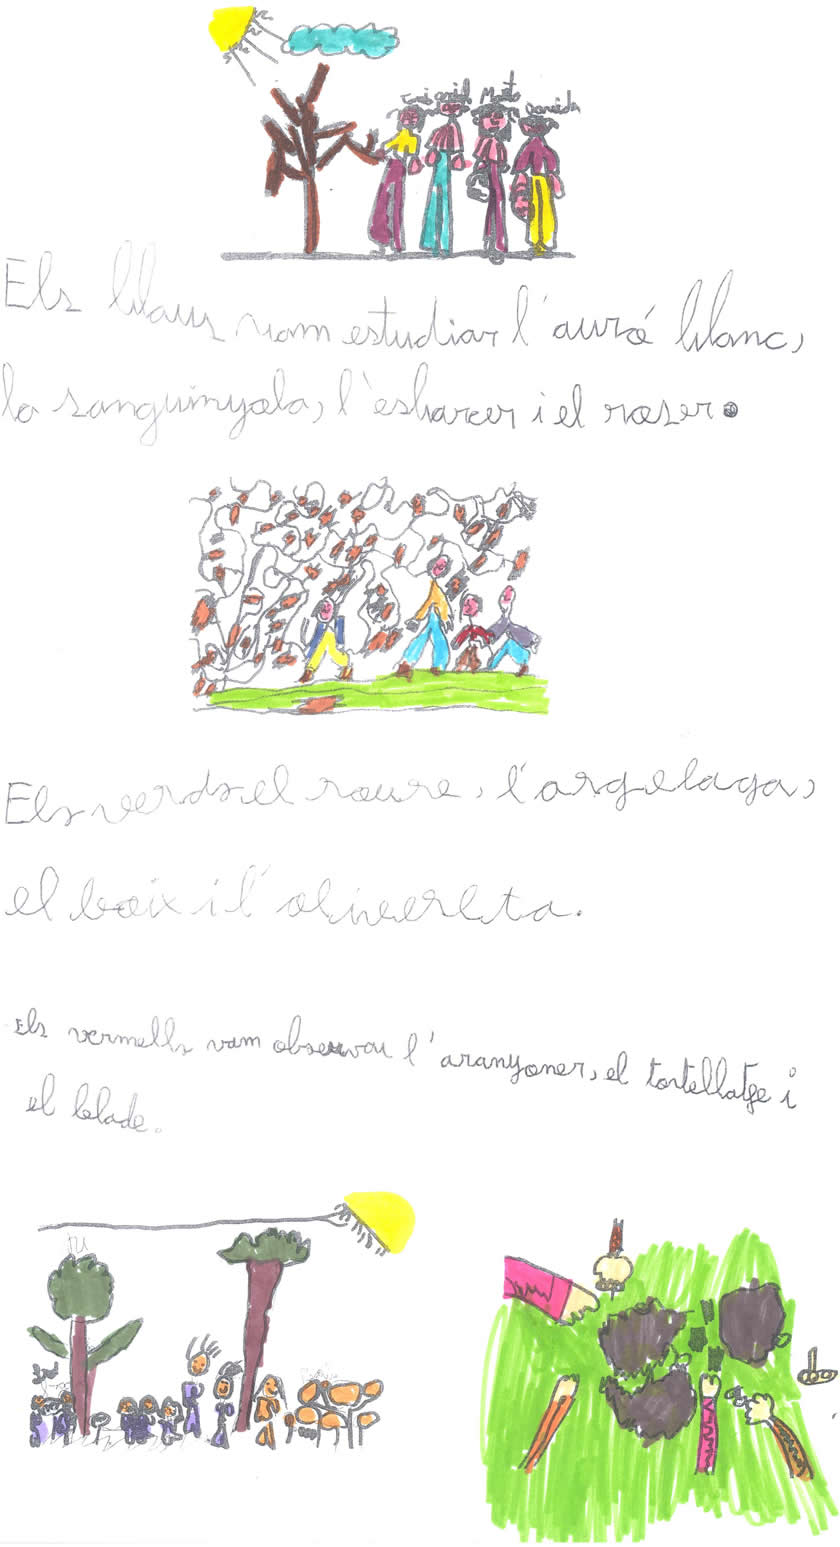 Marta
Daniela
Els blaus vam estudiar l'auró blanc,
la sanguinyola, l'esbarzer i el roser.
Els verds: el roure, l'argelaga,
el boix i l'olivereta.
Els vermells vam observar l'aranyoner, el tortellatge i
el blade.